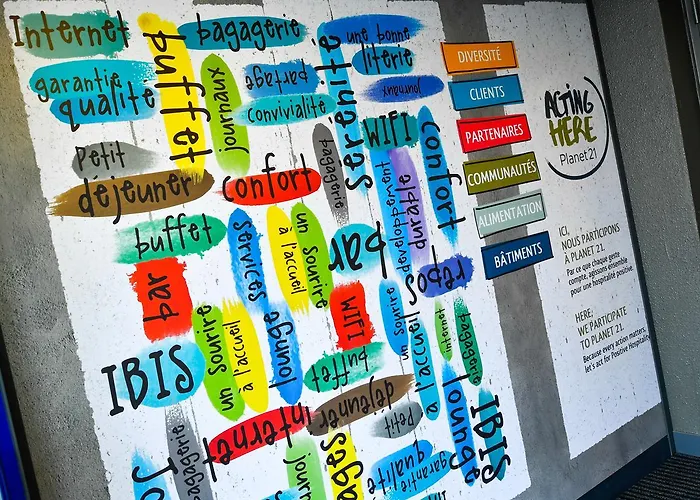 Internet
bagagerie
une bonne
literie
buffet
garantie
qualité
journaux
partage
convivialité
sérénité
journaux
WIFI
confort
Petit
déjeuner
confort
bagagerie
développement
durable
buffet
services
à l'accueil
un sourire
bar
repos
bar
WIFI
un sourire
à l'accueil
internet
bagagerie
IBIS
un sourire
à l'accueil
lounge
buffet
déjeuner
Petit
internet
lounge
IBIS
bagagerie
garantie
qualité
DIVERSITÉ
CLIENTS
PARTENAIRES
COMMUNAUTÉS
ALIMENTATION
BÂTIMENTS
ACTING
HERE
Planet 21
ICI,
NOUS PARTICIPONS
À PLANET 21.
Par ce que chaque geste
compte, agissons ensemble
pour une hospitalité positive.
HERE;
WE PARTICIPATE
TO PLANET 21.
Because every action matters,
let's act for Positive Hospitality